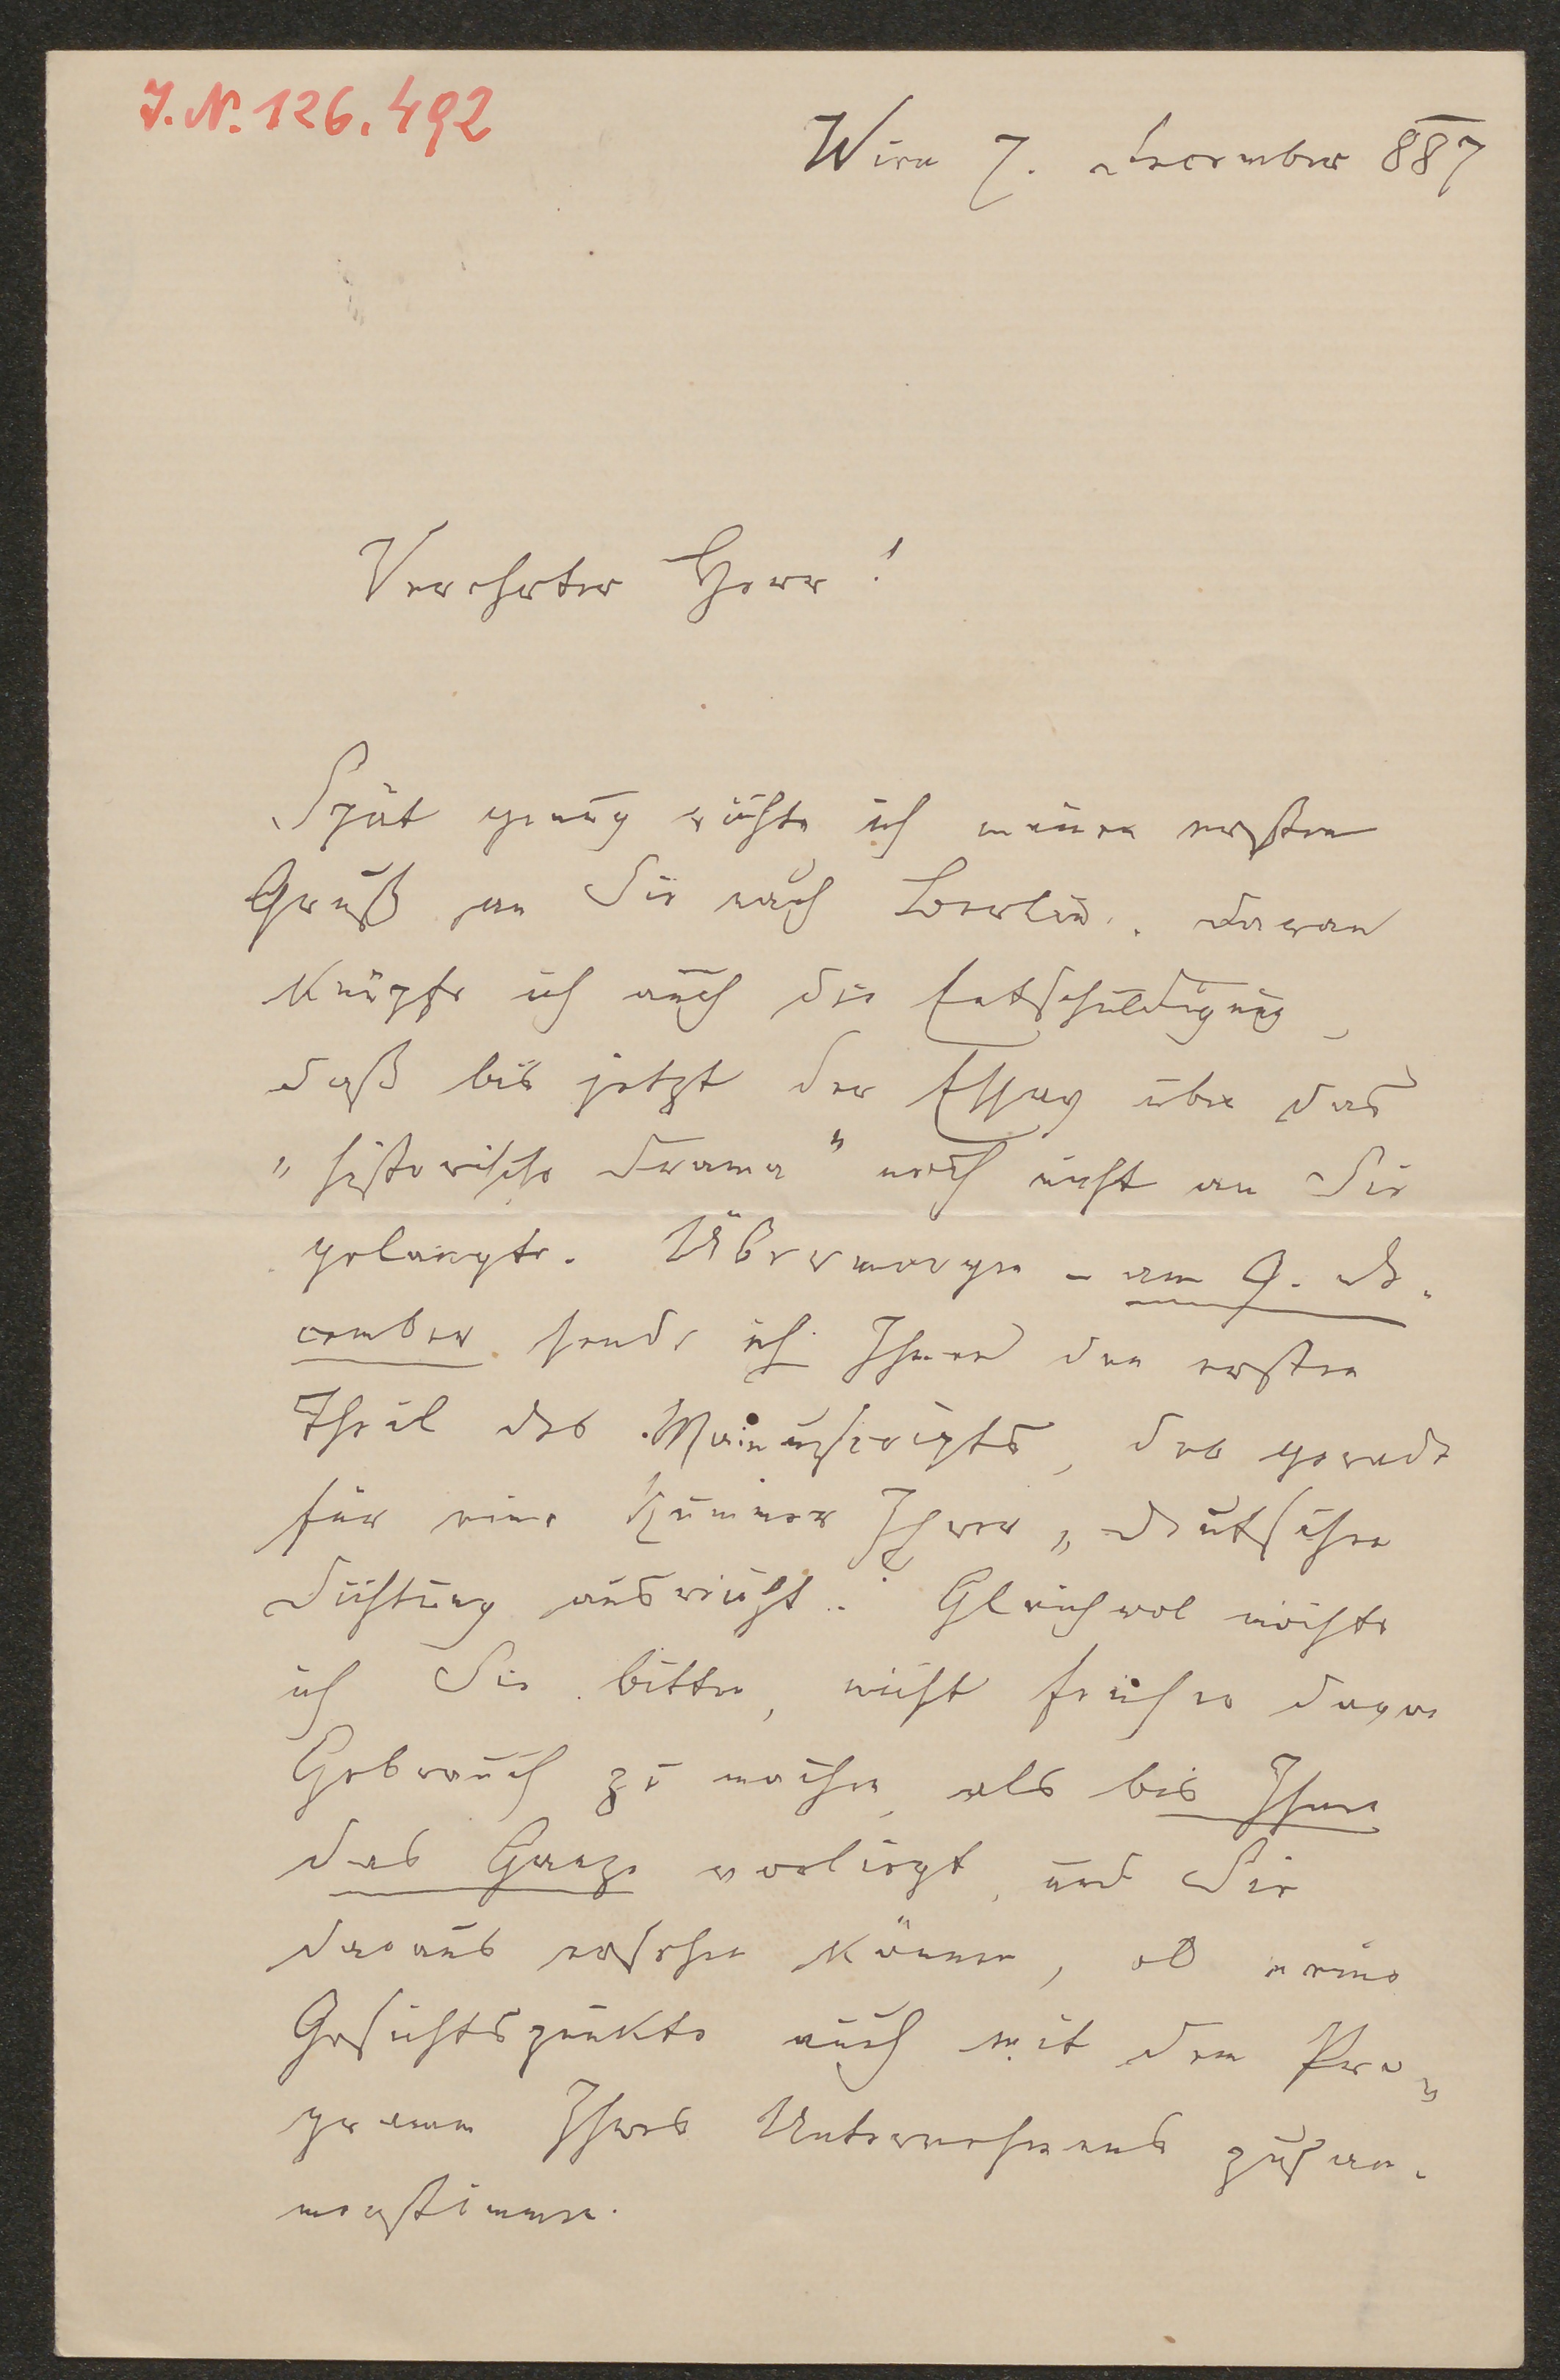 J. N. 126.492
Wien 7. December 887
Verehrter Herr!
Spät genug richte ich meinen ersten
Gruß an Sie nach Berlin. Daran
knüpfe ich auch die Entschuldigung,
daß bis jetzt der Essay über das
"historische Drama" noch nicht an Sie
gelangte. Übermorgen – am 9. De-
cember sende ich Ihnen den ersten
Theil des Manuscripts, der gerade
für eine Nummer Ihrer „Deutschen
Dichtung ausreicht. Gleichwol möchte
ich Sie bitten, nicht früher davon
Gebrauch zu machen, als bis Ihnen
das Ganze vorliegt, und Sie
daraus ersehen können, ob meine
Gesichtspunkte auch mit dem Pro-
gramm Ihres Unternehmens zusam-
menstimmen.